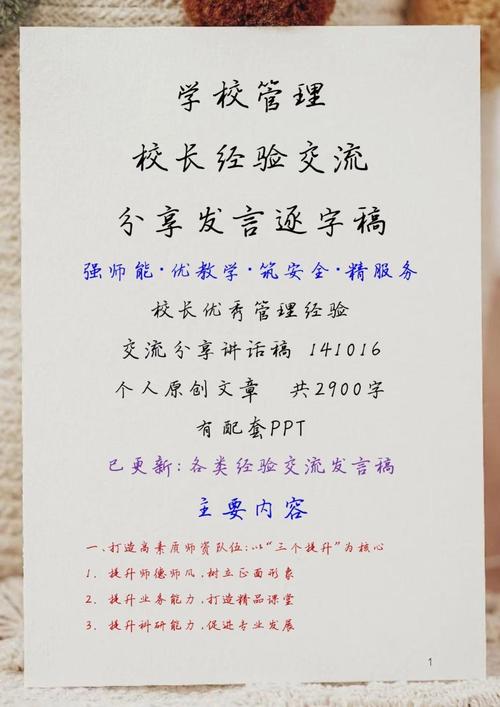 学校管理
校长经验交流
分享发言逐字稿
强师能·优教学·筑安全·精服务
校长优秀管理经验
交流分享讲话稿 141016
个人原创文章 共2900字
有配套PPT
已更新:各类经验交流发言稿
主要内容
一.打造高素质师资队伍:以“三个提升”为核心
1. 提升师德师风,树立正面形象
2. 提升业务能力,打造精品课堂
3. 提升科研能力,促进专业发展
1